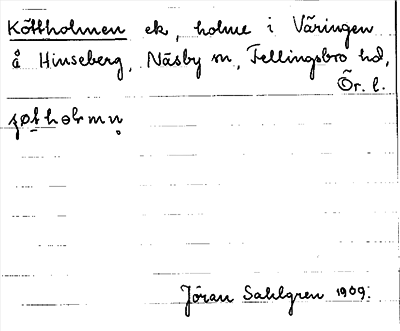 Köttholmen ek, holme i Väringen
å Hinseberg, Näsby sn, Fellingsbro hd,
Ör. l.
Jöran Sahlgren 1909.